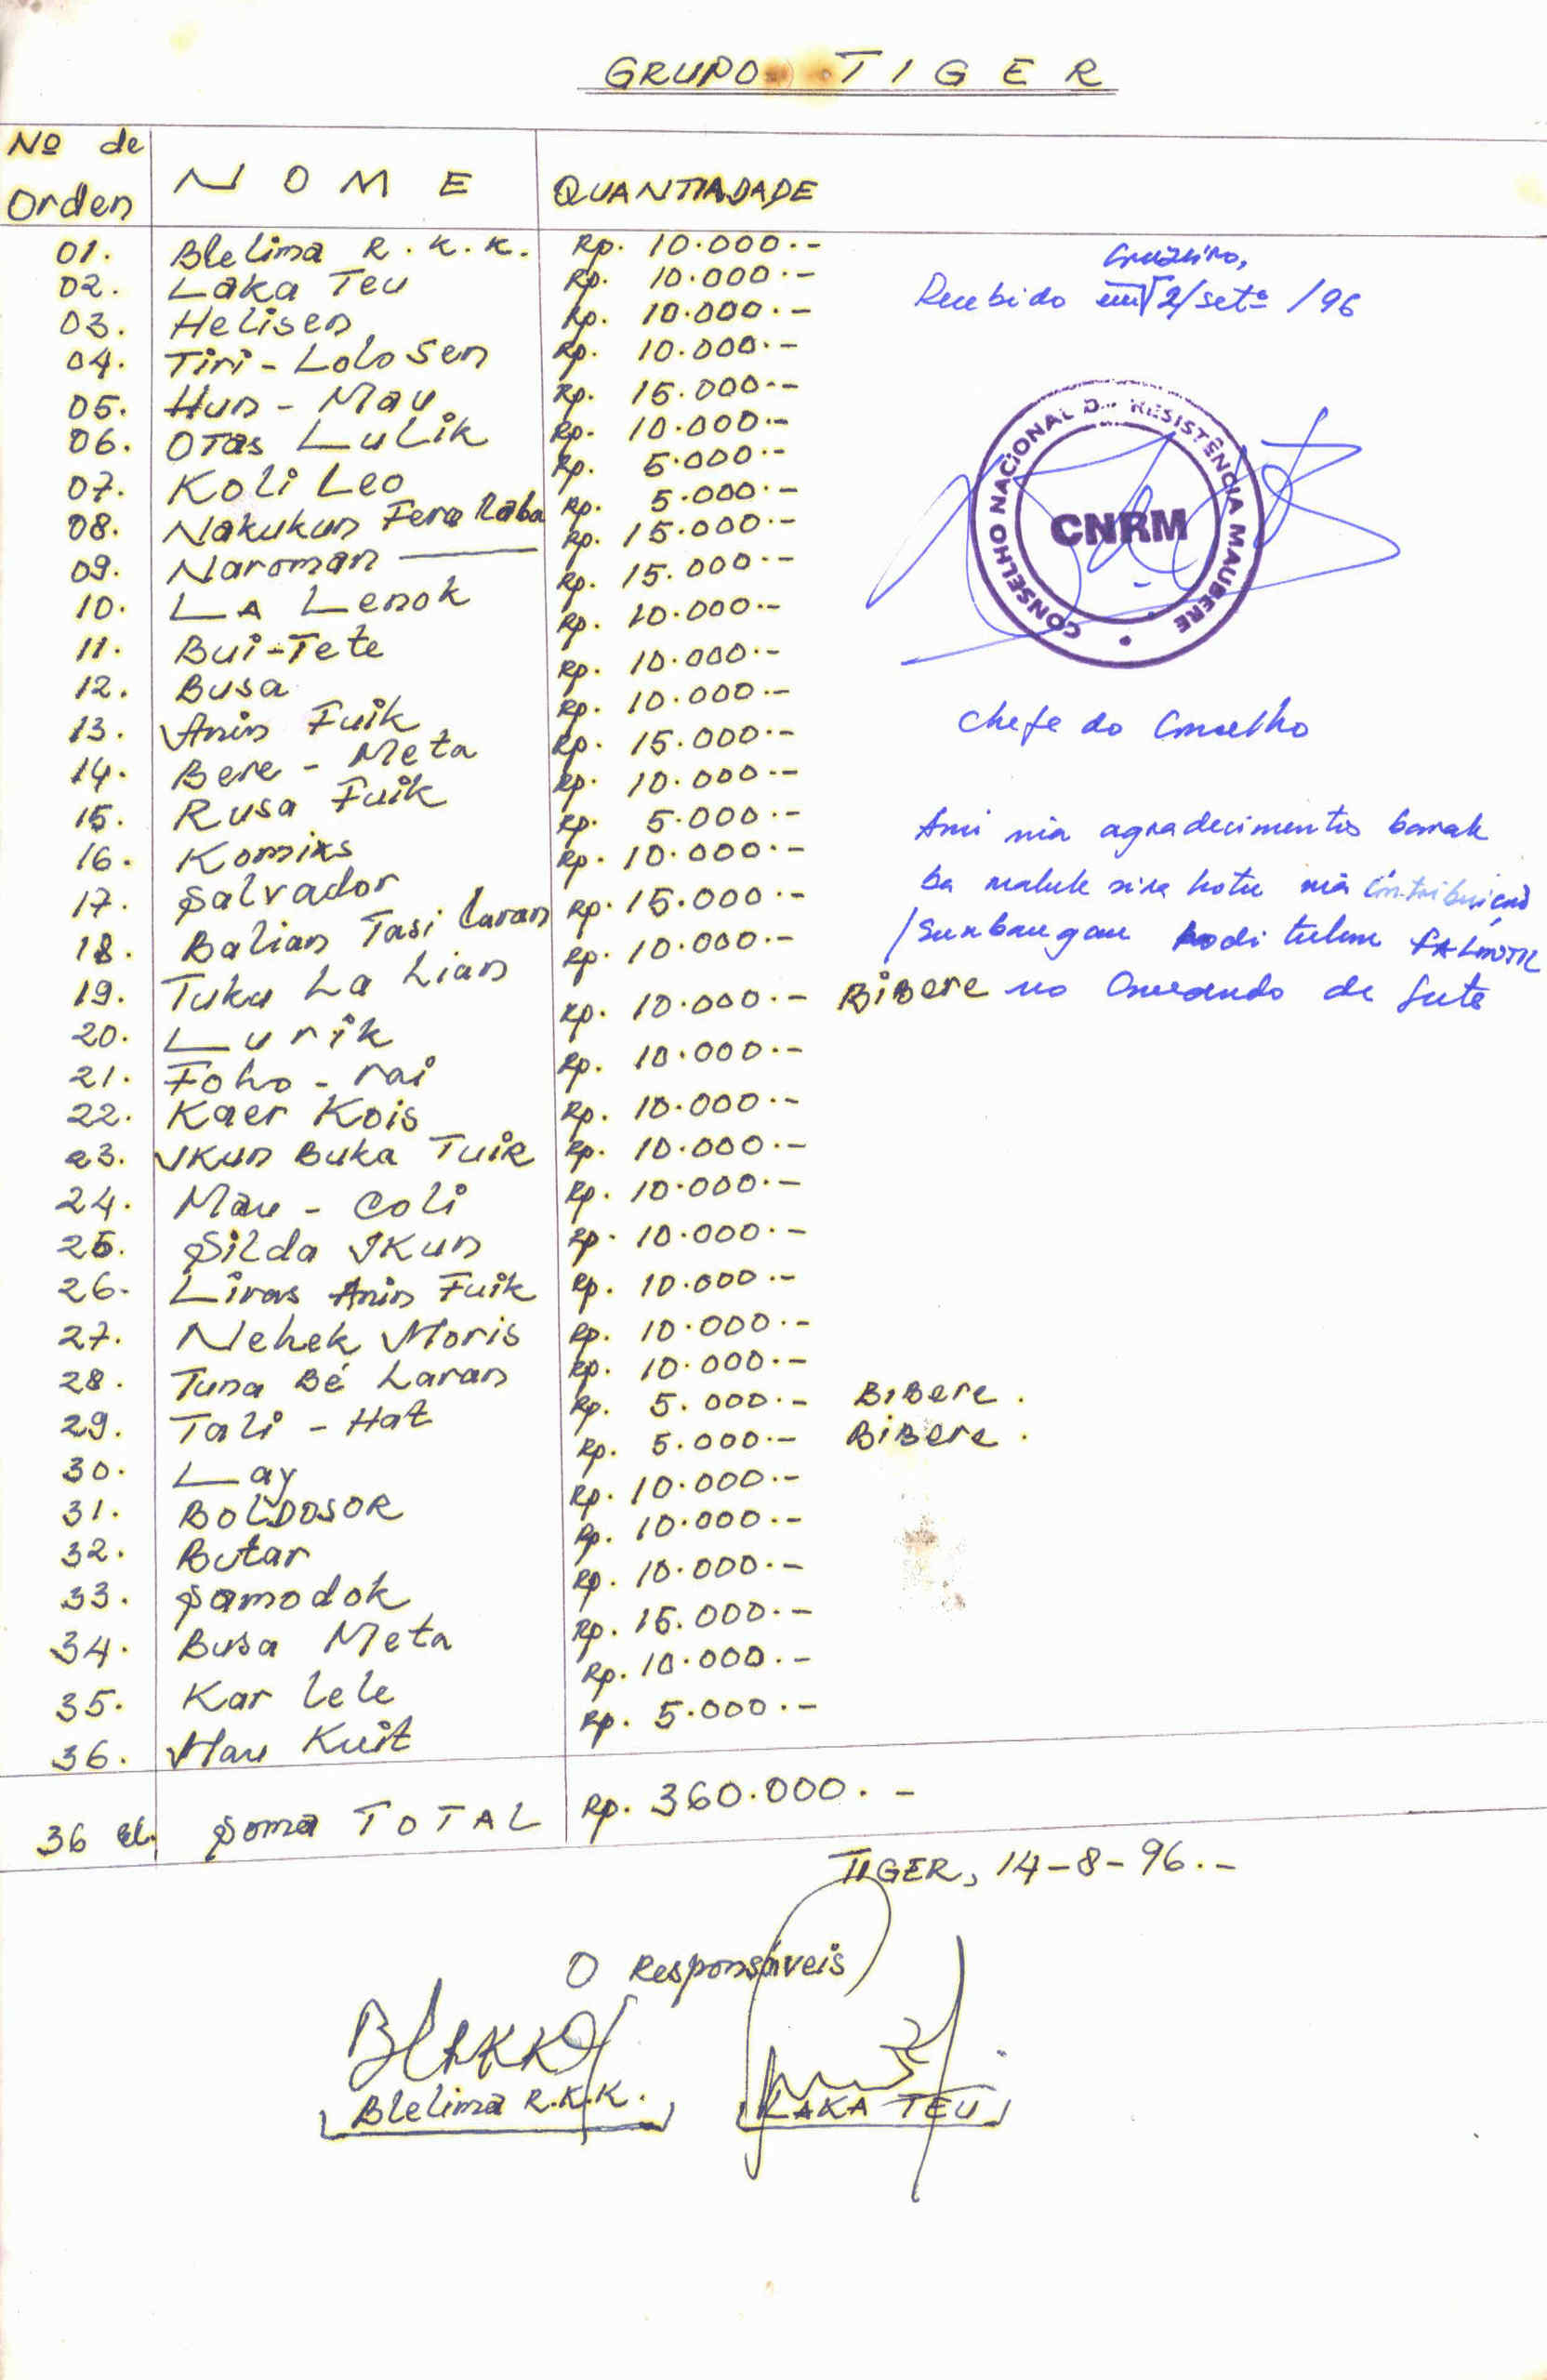 GRUPO TIGER
Nº de Orden NOME QUANTIADADE
01. Blelima R.K.K. Rp. 10.000.-
02. Laka Teu Rp. 10.000.-
03. Helisen Rp. 10.000.-
04. Tiri - Lolo Sen Rp. 10.000.-
05. Hun - Mau Rp. 15.000.-
06. Otas Lulik Rp. 10.000.-
07. Koli Leo Rp. 5.000.-
08. Nakukun Fera Raba Rp. 5.000.-
09. Naroman Rp. 15.000.-
10. La Lenok Rp. 15.000.-
11. Bui-Tete Rp. 10.000.-
12. Busa Rp. 10.000.-
13. Anin Fuik Rp. 10.000.-
14. Bere - Meta Rp. 15.000.-
15. Rusa Fuik Rp. 10.000.-
16. Komixs Rp. 5.000.-
17. Salvador Rp. 10.000.-
18. Balian Tasi laran Rp. 15.000.-
19. Tuku La Lian Rp. 10.000.-
20. Lurik Rp. 10.000.- Bibere
21. Foho - rai Rp. 10.000.-
22. Kaer Kois Rp. 10.000.-
23. Ikun Buka Tuir Rp. 10.000.-
24. Mau - Coli Rp. 10.000.-
25. Silda Ikun Rp. 10.000.-
26. Liras Anin Fuik Rp. 10.000.-
27. Nehek Moris Rp. 10.000.-
28. Tuna Bé Laran Rp. 10.000.-
29. Tali - Hat Rp. 5.000.- Bibere.
30. Lay Rp. 5.000.- Bibere.
31. BOLDOSOR Rp. 10.000.-
32. Butar Rp. 10.000.-
33. Samodok Rp. 10.000.-
34. Busa Meta Rp. 15.000.-
35. Kar lele Rp. 10.000.-
36. Mau Kuit Rp. 5.000.-
36 el. Soma TOTAL Rp. 360.000.-
Cruzeiro,
Recebido em 2/setº/96
CONSELHO NACIONAL DA RESISTÊNCIA MAUBERE
CNRM
Chefe do Conselho
Ami nia agradecimentos barak
ba maluk sira hotu nia contribuição
/Sunbangan hodi tulun FALINTIL
no Comando da Luta
TIGER, 14-8-96.-
O Responsáveis
Blelima R.K.K.
LAKA TEU